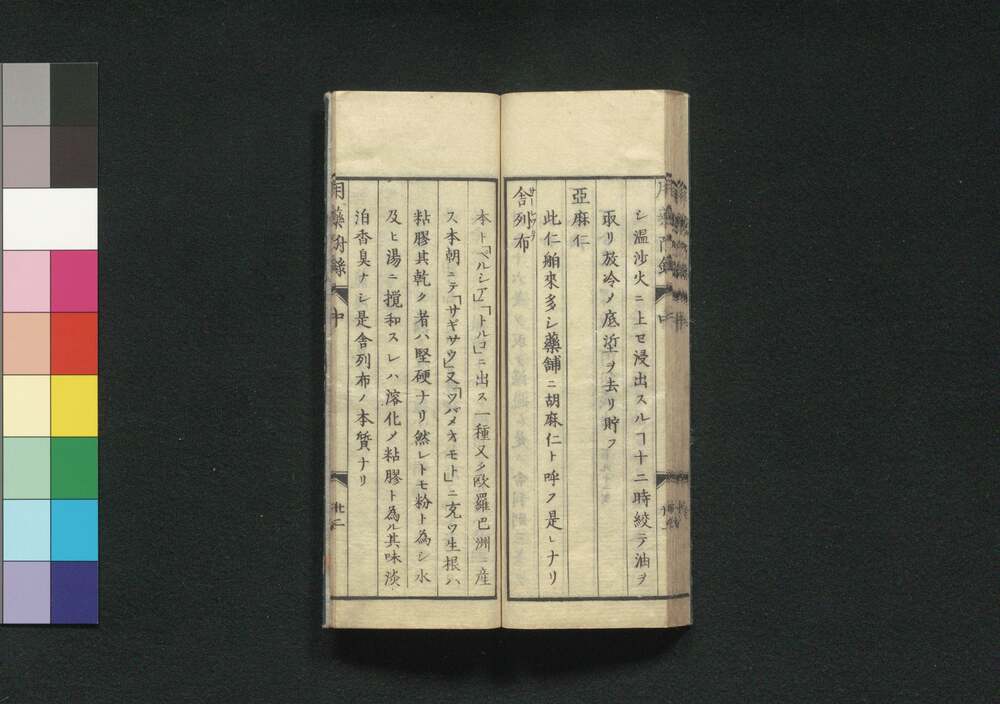 シ温沙火ニ上セ浸出スルヿ十二時絞テ油ヲ
取リ放冷ノ底埿ヲ去リ貯フ
亞麻仁
此仁舶來多シ藥舗ニ胡麻仁ト呼フ是レナリ
舎列布
本ト「ペルシア」「トルコ」ニ出ス一種又タ歐羅巴洲ニ産
ス本朝ニテ「サギサウ」又「ツバメオモト」ニ充ツ生根ハ
粘膠其乾ク者ハ堅硬ナリ然レトモ粉ト為シ水
及ヒ湯ニ攪和スレハ溶化ノ粘膠ト為ル其味淡
泊香臭ナシ是舎列布ノ本質ナリ
用藥附録
中
廿二